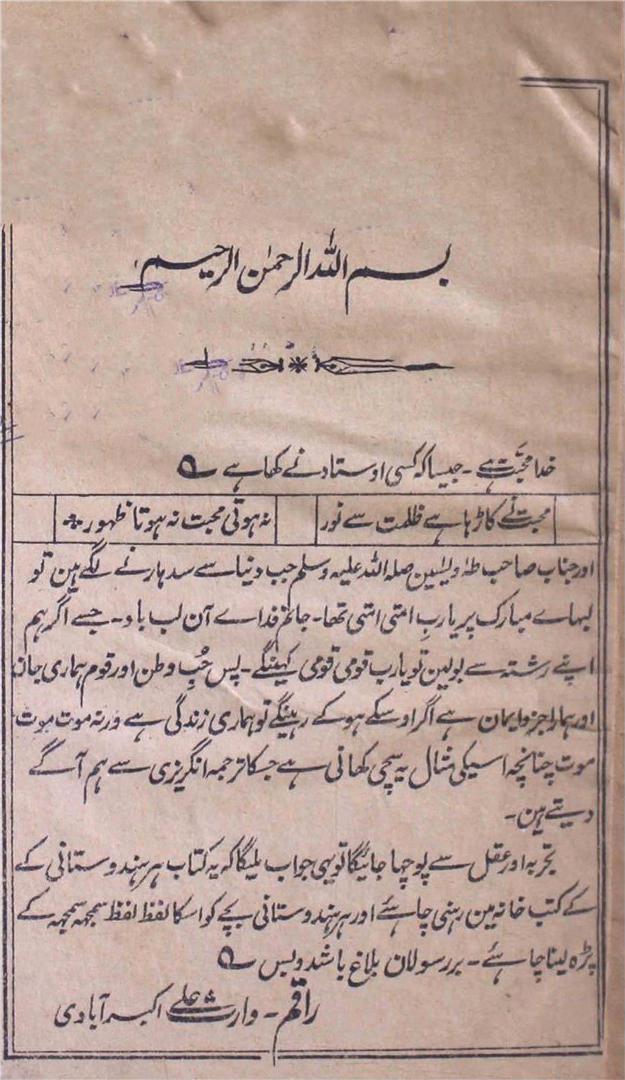 بسم اللہ الرحمٰن الرحیم
خدا محبت ہے ۔ جیسا کہ کسی اوستاد نے کہا ہے ؎
محبت نے کاڑہا ہے ظلمت سے نور نہ ہوتی محبت نہ ہوتا ظہور
اور جناب صاحب طہٰ و یسٰین صلہ اللہ علیہ وسلم جب دنیا سے سدہارنے لگے ہین تو
لبہاے مبارک پر یارب امتی امتی تھا ۔ جانم فداے آن لب باد ۔ جسے اگر ہم
اپنے رشتہ سے بولین تو یارب قومی قومی کہینگے ۔ پس حُبِ وطن اور قوم ہماری جان
اور ہمارا جزو ایمان ہے اگر اوسکے ہو کے رہینگے تو ہماری زندگی ہے ورنہ موت موت
موت چنانچہ اسیکی مثال یہ سچی کہانی ہے جسکا ترجمہ انگریزی سے ہم آگے
دیتے ہین ۔
تجربہ اور عقل سے پوچہا جائیگا تو یہی جواب ملیگا کہ یہ کتاب ہر ہندوستانی کے
کے کتب خانہ مین رہنی چاہئے اور ہر ہندوستانی بچے کو اسکا لفظ لفظ سمجہہ سمجہہ کے
پڑہ لینا چاہئے ۔ بر رسولان بلاغ باشد و بس ؎
راقم ۔ وارث علے اکبرآبادی